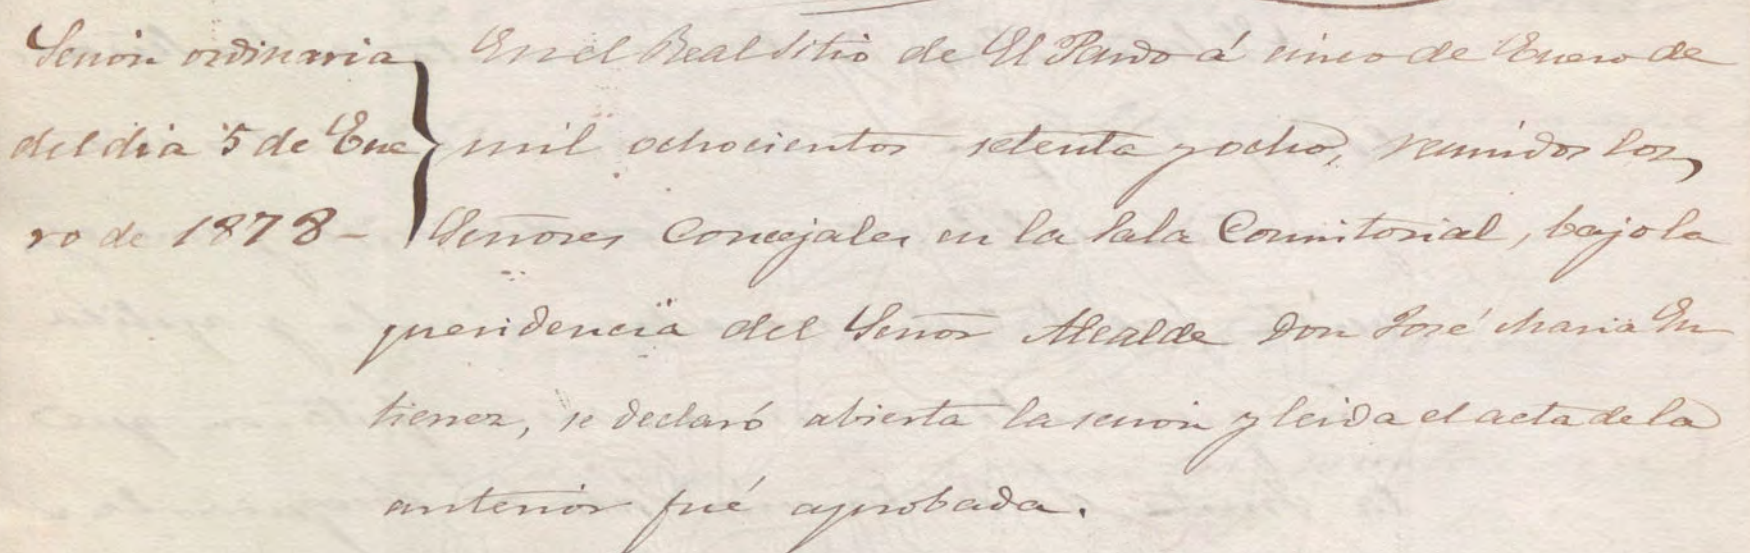 Sesion ordinaria
del dia 5 de Ene
ro de 1878 -
En el Real Sitio de El Pardo á cinco de Enero de
mil ochocientos setenta y ocho, reunidos los
Señores Concejales en la Sala Consistorial, bajo la
presidencia del Señor Alcalde Don José Maria
se declaró abierta la sesion y leida el acta de la
anterior fué aprobada.